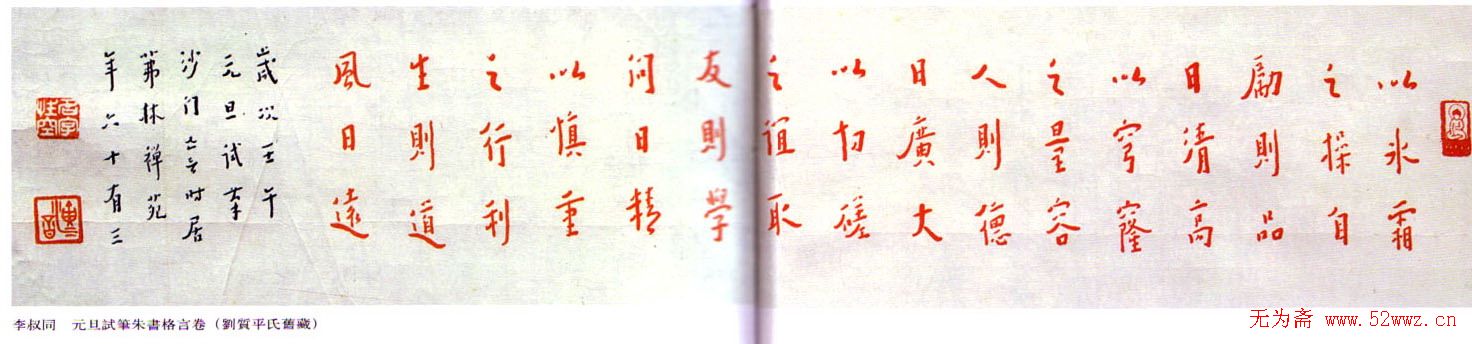 以氷霜
之操自
勵則品
日清高
以穹窿
之量容
人則德
日廣大
以切磋
之誼取
友則學
問日精
以慎重
之行利
生則道
風日遠
歲次壬午
元旦試筆
沙门亡言时居
茀林禅苑
年六十有三
演音
李叔同 元旦試筆朱書格言卷（劉質平氏舊藏）
无为斋 www.52wwz.cn